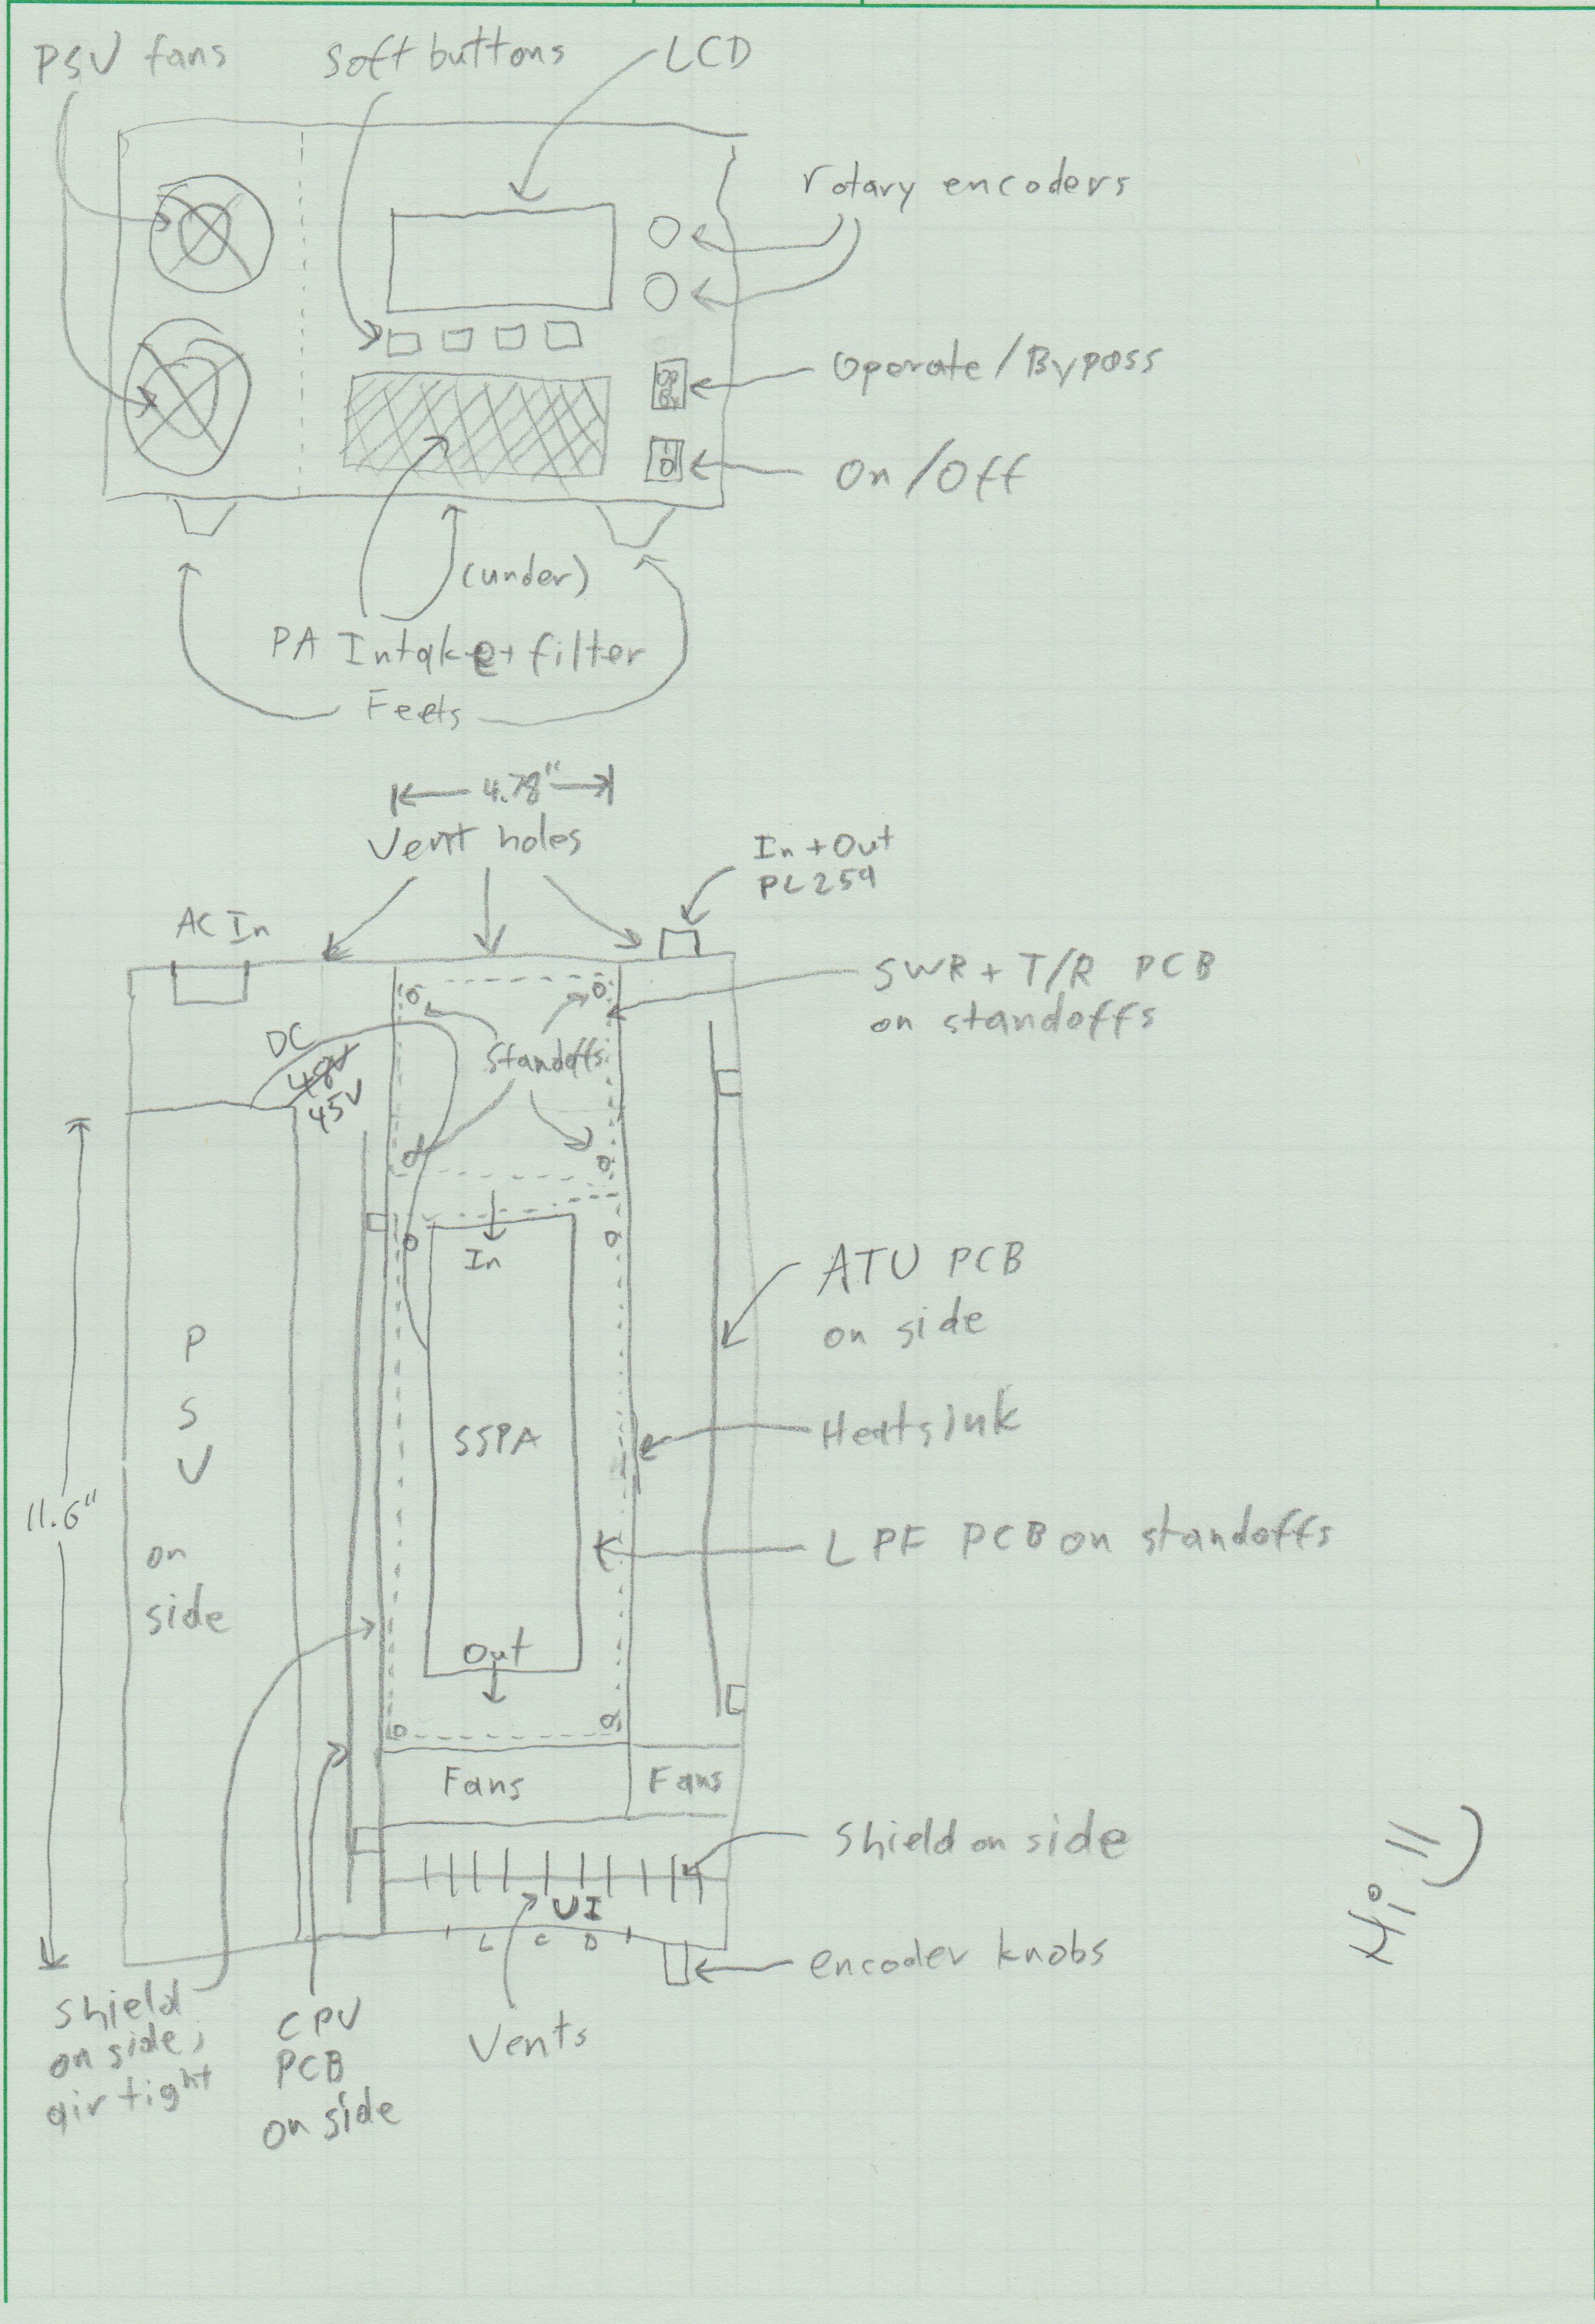 PSU fans
Soft buttons
LCD
rotary encoders
Operate/Bypass
On/Off
(under)
PA Intake+filter
Feets
4.78"
Vent holes
In+Out
PL259
AC In
SWR + T/R PCB
on standoffs
DC
48V
45V
Standoffs
In
ATU PCB
on side
PSU
on
side
SSPA
Heatsink
11.6"
LPF PCB on standoffs
Out
Fans
Fans
Shield on side
UI
LCD
encoder knobs
Shield
on side,
air tight
CPU
PCB
on side
Vents
Hi